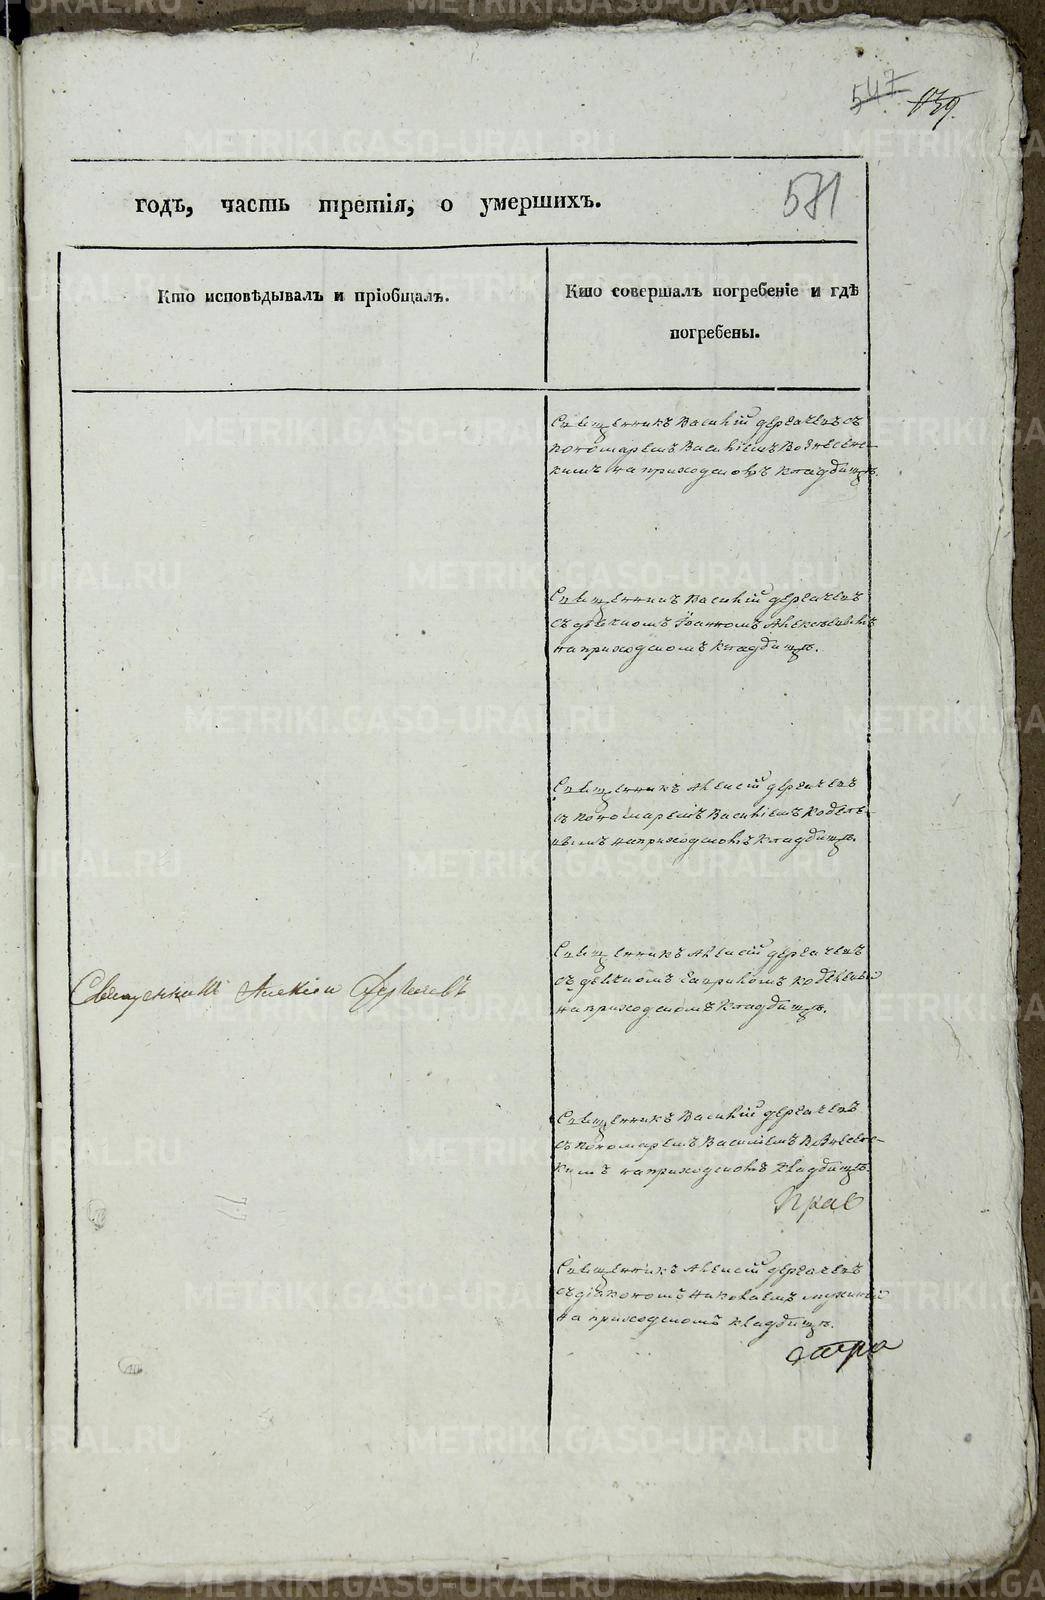 547 139.
годъ, часть третія, о умершихъ. 571
Кто исповѣдывалъ и пріобщалъ.
Кто совершалъ погребеніе и гдѣ
погребены.
Священникъ Василій Дергачевъ съ
пономаремъ Василіемъ Вознесенс-
кимъ на приходскомъ кладбищѣ.
Священникъ Василій Дергачевъ
съ дьячкомъ Іоанномъ
на приходскомъ кладбищѣ.
Священникъ Алексій Дергачевъ
съ пономаремъ Василіемъ Кодель-
вымъ на приходскомъ кладбищѣ.
Священникъ Алексій Дергачевъ
Священникъ Алексій Дергачевъ
съ дьячкомъ
на приходскомъ кладбищѣ.
Священникъ Василій Дергачевъ
съ пономаремъ Василіемъ Вознесенс-
кимъ на приходскомъ кладбищѣ.
Прав
Священникъ Алексій Дергачевъ
съ діакономъ Николаемъ
на приходскомъ кладбищѣ.
METRIKI.GASO-URAL.RU